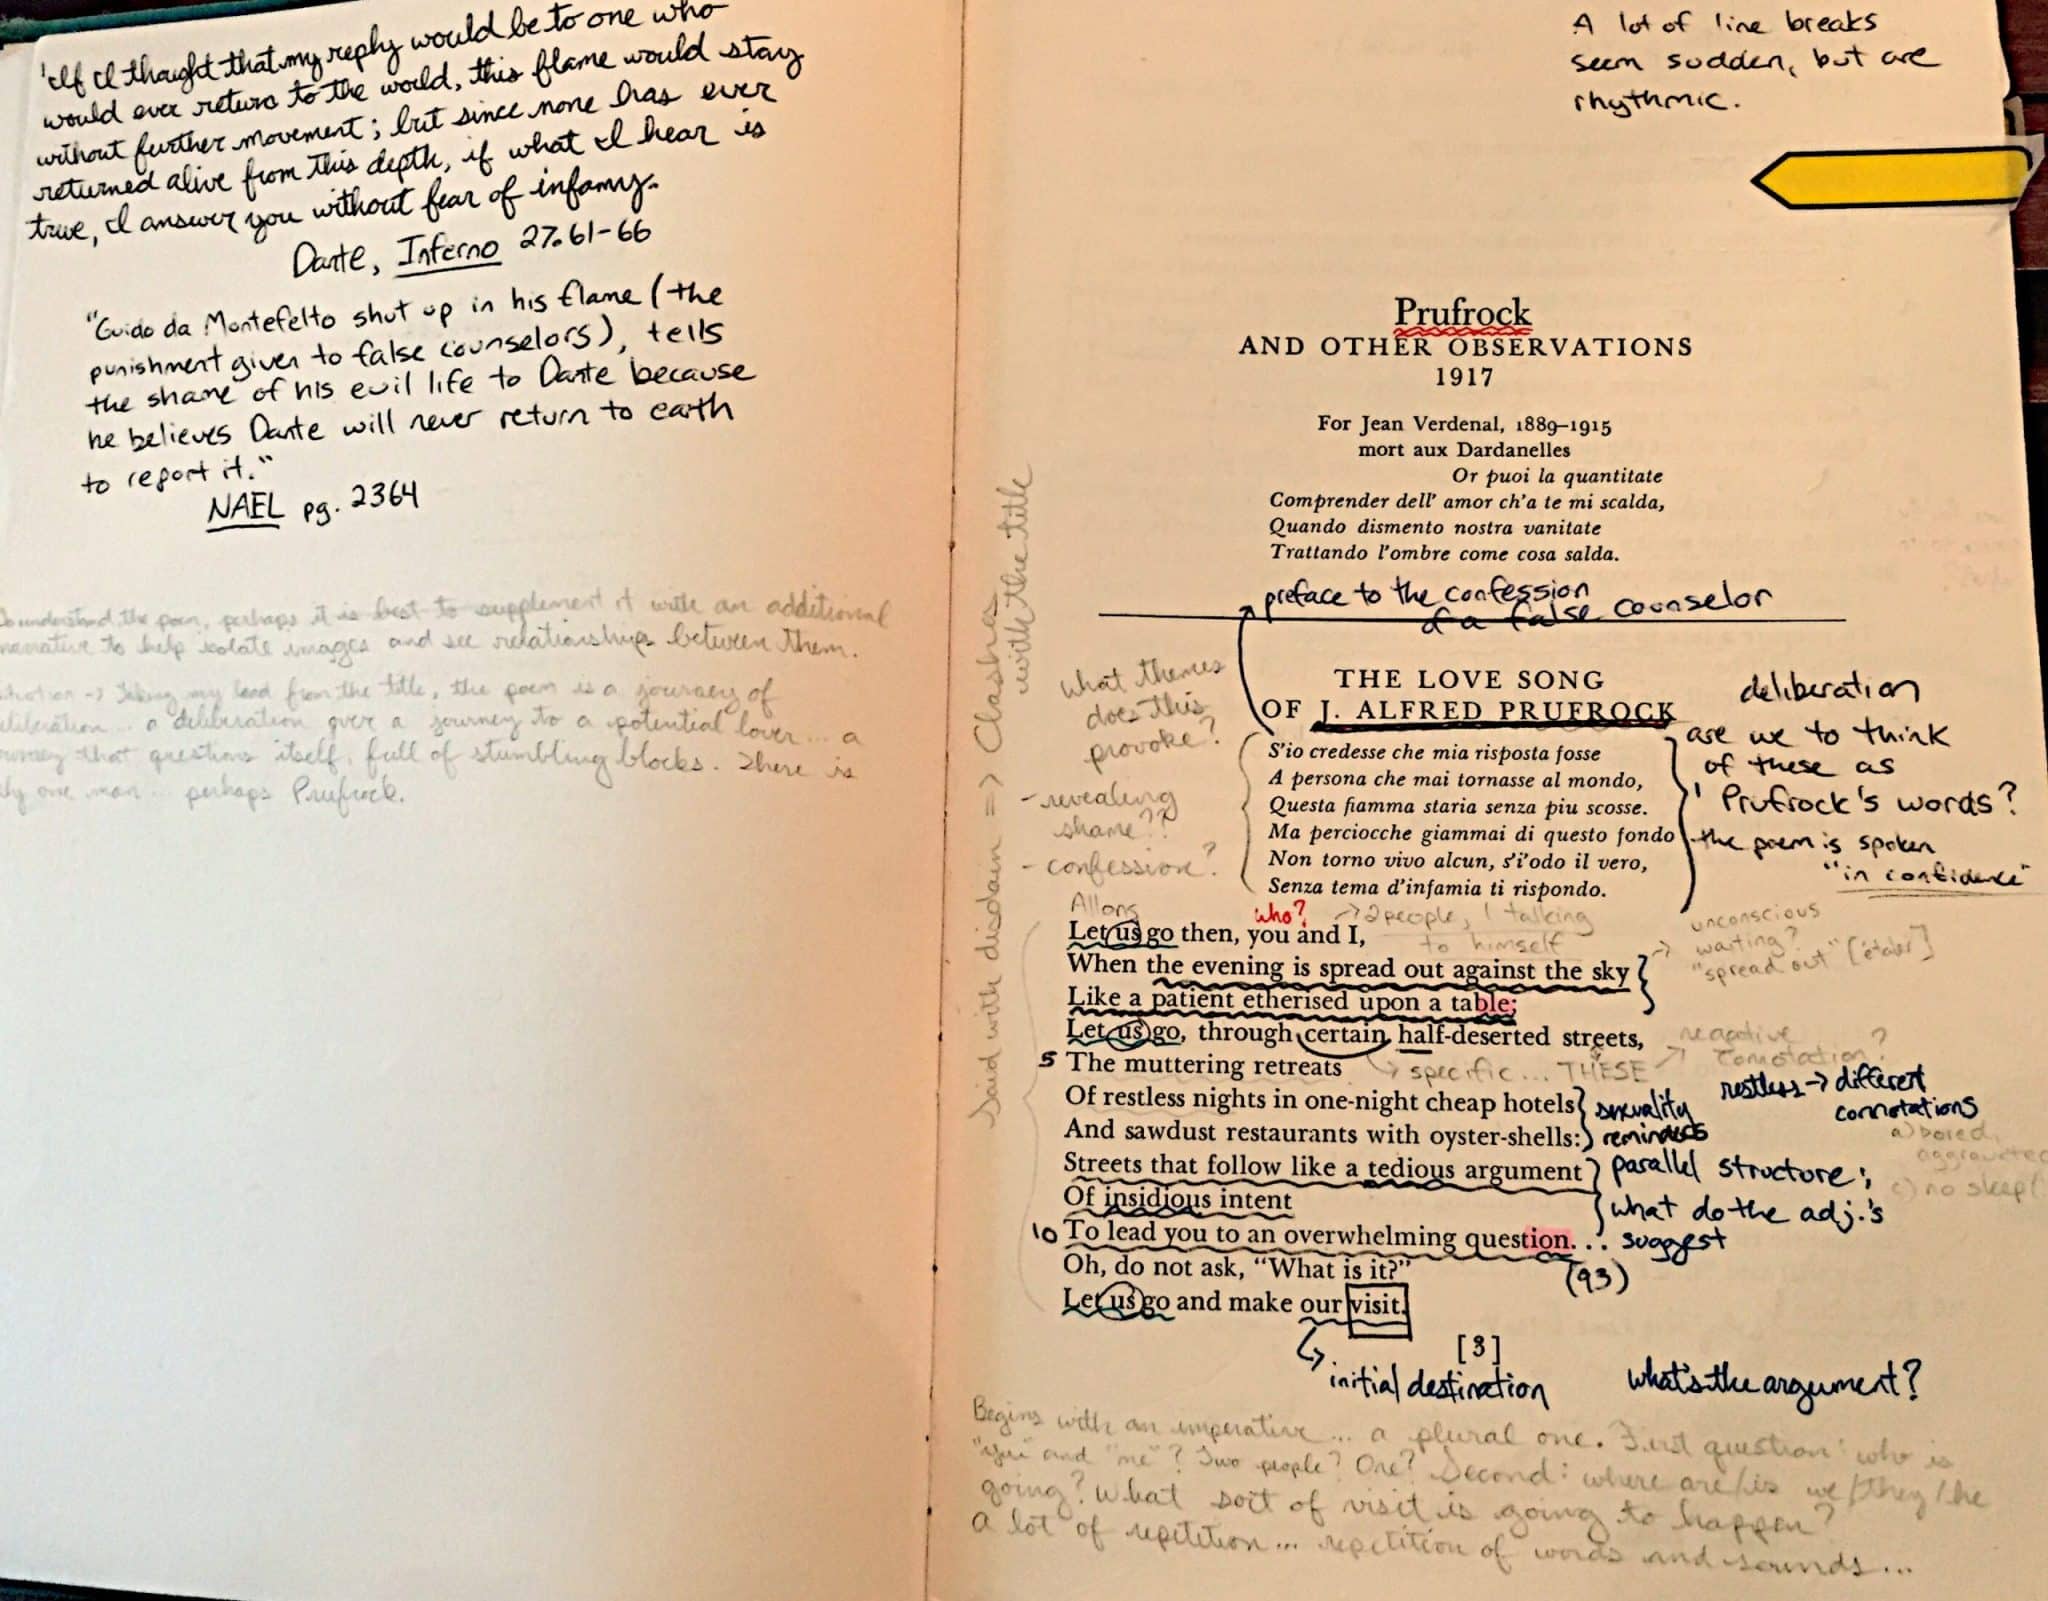 'If I thought that my reply would be to one who
would ever return to the world, this flame would stay
without further movement; but since none has ever
returned alive from this depth, if what I hear is
true, I answer you without fear of infamy.
Dante, Inferno 27.61-66
"Guido da Montefelto shut up in his flame (the
punishment given to false counselors), tells
the shame of his evil life to Dante because
he believes Dante will never return to earth
to report it."
NAEL pg. 2364
understand the poem, perhaps it is best to supplement it with an additional
narrative to help isolate images and see relationships between them.
Taking my lead from the title, the poem is a journey of
deliberation... a deliberation over a journey to a potential lover... a
journey that questions itself, full of stumbling blocks. There is
only one man... perhaps Prufrock.
A lot of line breaks
seem sudden, but are
rhythmic.
Prufrock
AND OTHER OBSERVATIONS
1917
For Jean Verdenal, 1889–1915
mort aux Dardanelles
Or puoi la quantitate
Comprender dell' amor ch'a te mi scalda,
Quando dismento nostra vanitate
Trattando l'ombre come cosa salda.
preface to the confession
of a false counselor
THE LOVE SONG
OF J. ALFRED PRUFROCK
S'io credesse che mia risposta fosse
A persona che mai tornasse al mondo,
Questa fiamma staria senza piu scosse.
Ma perciocche giammai di questo fondo
Non torno vivo alcun, s'i'odo il vero,
Senza tema d'infamia ti rispondo.
deliberation
are we to think
of these as
Prufrock's words?
the poem is spoken
"in confidence"
what themes
does this
provoke?
- revealing
shame??
- confession?
Said with disdain => Clashes
with the title
Allons
who?
→ 2 people, 1 talking
to himself
Let us go then, you and I,
When the evening is spread out against the sky
Like a patient etherised upon a table;
unconscious
waiting?
"spread out"
Let us go, through certain half-deserted streets,
negative
connotation?
5 The muttering retreats
specific... THESE
Of restless nights in one-night cheap hotels
And sawdust restaurants with oyster-shells:
sexuality
reminders
restless → different
connotations
a) bored,
c) no sleep
Streets that follow like a tedious argument
Of insidious intent
10 To lead you to an overwhelming question...
parallel structure;
what do the adj.'s
suggest
(93)
Oh, do not ask, "What is it?"
Let us go and make our visit.
[3]
initial destination
what's the argument?
Begins with an imperative... a plural one. First question: who is
"you" and "me"? Two people? One? Second: where are/is we/they/he
going? What sort of visit is going to happen?
A lot of repetition... repetition of words and sounds...